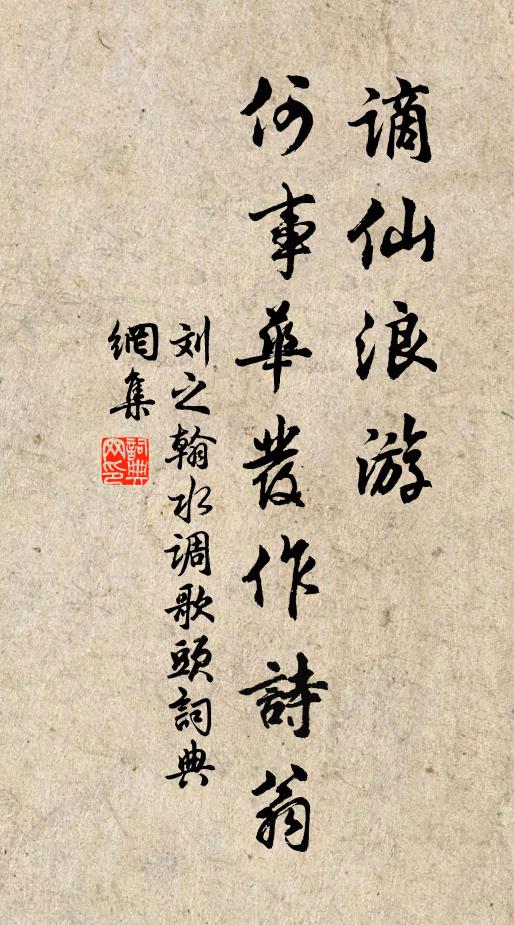 谪仙浪游
何事華发作詩翁
刘之翰水调歌頭詞典
網集
詞典
网印